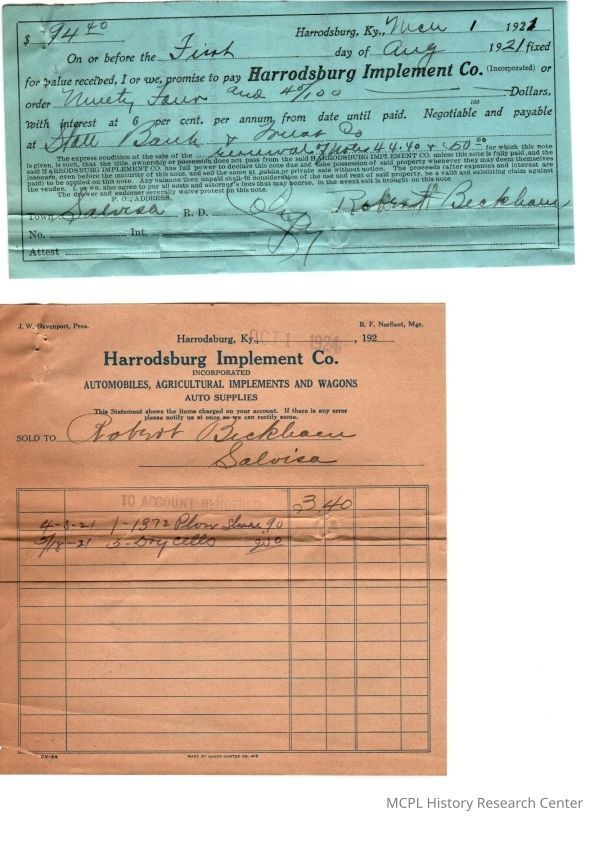 $ 94 40 Harrodsburg, Ky., Mch 1 1921
On or before the First day of Aug 1921 fixed
for value received, I or we, promise to pay Harrodsburg Implement Co. (Incorporated) or
order Ninety Four and 40/100 Dollars,
with interest at 6 per cent. per annum, from date until paid. Negotiable and payable
at State Bank & Trust Co
renewal of notes 44.40 & 50.00
The express condition of the sale of the for which this note
is given, is such, that the title, ownership or possession does not pass from the said HARRODSBURG IMPLEMENT CO. unless this note is fully paid, and the
said HARRODSBURG IMPLEMENT CO. has full power to declare this note due and take possession of said property whenever they may deem themselves
insecure, even before the maturity of this note, and sell the same at public or private sale without notice. The proceeds (after expenses and interest are
paid) to be applied on this note. Any balance then unpaid shall, in consideration of the use and rent of said property, be a valid and subsisting claim against
the vendee. I or we also agree to pay all costs and attorney's fees that may accrue, in the event suit is brought on this note
The drawer and endorser severally waive protest on this note.
P. O. ADDRESS.
Town Salvisa R. D. Robert Beckham
No. Int.
Attest
J. W. Davenport, Pres. B. F. Norfleet, Mgr.
Harrodsburg, Ky., OCT 1 1921, 192
Harrodsburg Implement Co.
INCORPORATED
AUTOMOBILES, AGRICULTURAL IMPLEMENTS AND WAGONS
AUTO SUPPLIES
This Statement shows the items charged on your account. If there is any error
please notify us at once so we can rectify same.
SOLD TO Robert Beckham
Salvisa
TO ACCOUNT RENDERED 3 40
4-5-21 1-1372 Plow Share 90
5/18-21 5-Dry cells 250
CV-24 MADE BY BAKER-VAWTER CO.
MCPL History Research Center